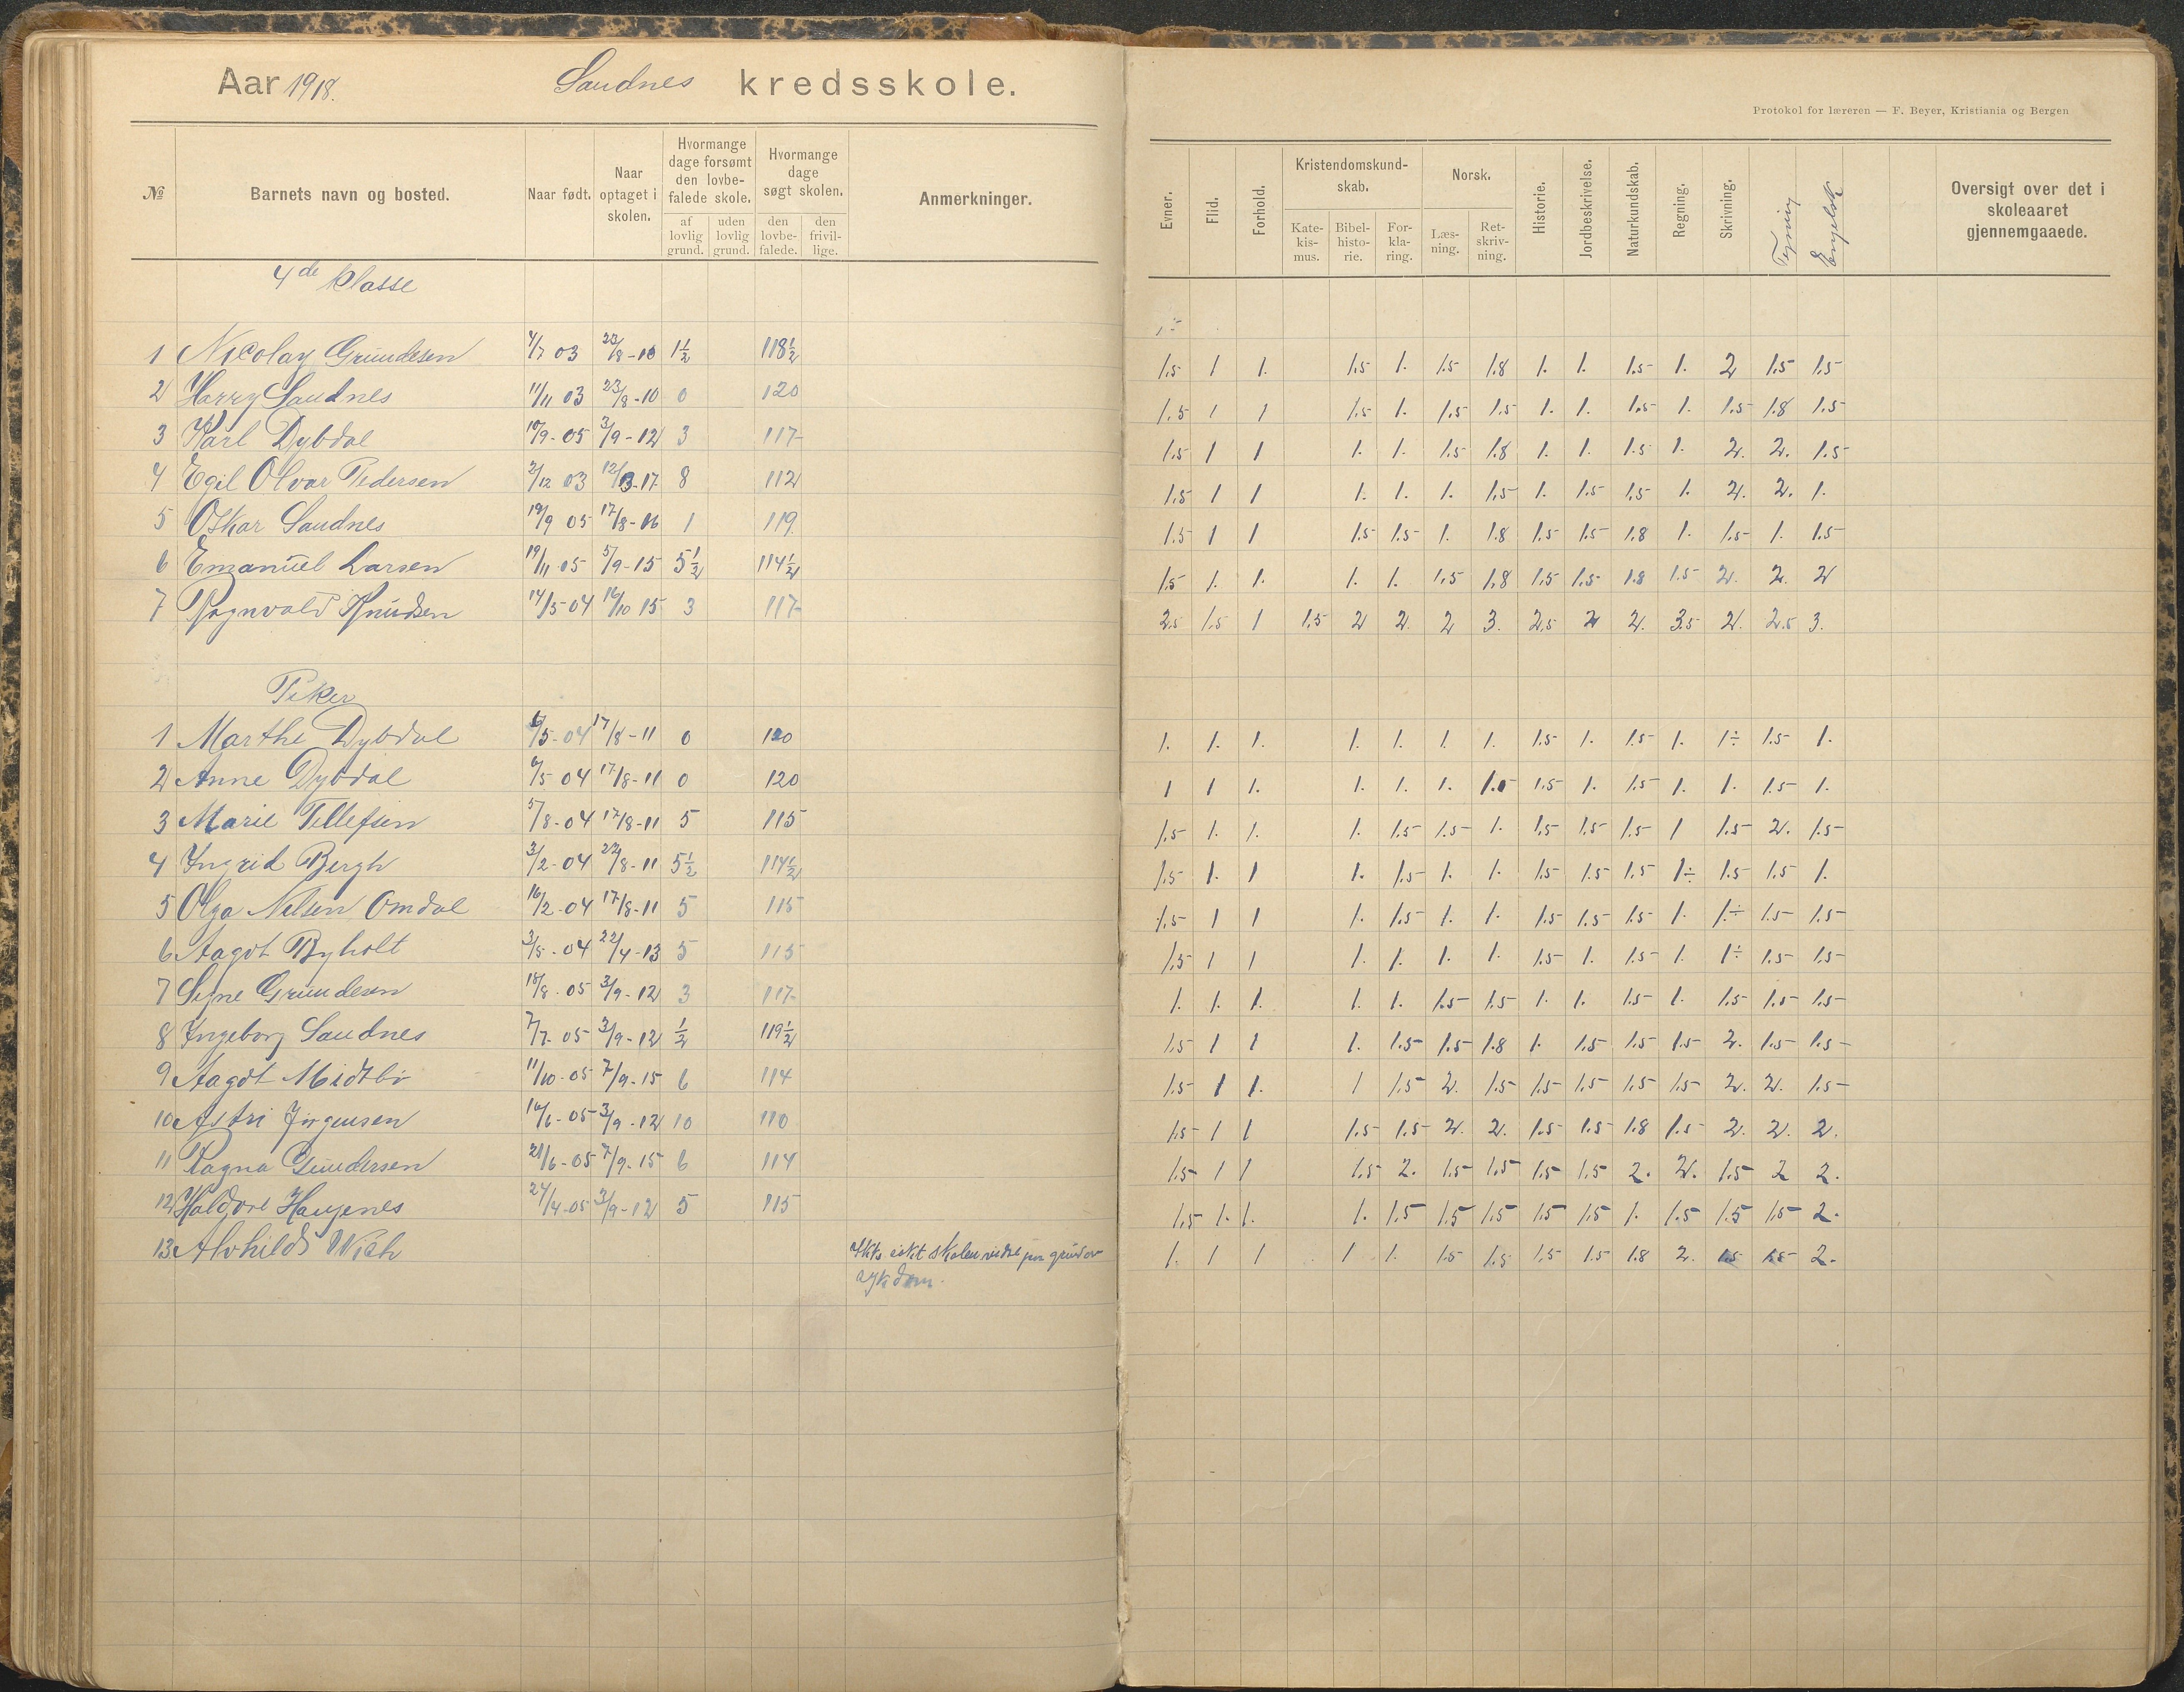 Aar 1918. Saudnes kredsskole.
Protokol for læreren — F. Beyer, Kristiania og Bergen
№ Barnets navn og bosted. Naar født. Naar optaget i skolen. Hvormange dage forsømt den lovbefalede skole. af lovlig grund. uden lovlig grund. Hvormange dage søgt skolen. den lovbefalede. den frivillige. Anmerkninger.
Evner. Flid. Forhold. Kristendomskundskab. Katekismus. Bibelhistorie. Forklaring. Norsk. Læsning. Retskrivning. Historie. Jordbeskrivelse. Naturkundskab. Regning. Skrivning. Tegning Engelsk Oversigt over det i skoleaaret gjennemgaaede.
4de klasse
1 Nicolay Grundesen 4/7 03 23/8-10 1½ 118½ 1.5 1 1. 1.5 1. 1.5 1.8 1. 1. 1.5 1. 2 1.5 1.5
2 Harry Saudnes 11/11 03 23/8-10 0 120 1.5 1 1 1.5 1. 1.5 1.5 1. 1. 1.5 1. 1.5 1.8 1.5
3 Karl Dybdal 10/9-05 3/9-12 3 117 1.5 1 1 1. 1. 1.5 1.8 1. 1. 1.5 1. 2. 2. 1.5
4 Egil Olvar Pedersen 2/12 03 12/3-17 8 112 1.5 1 1 1. 1. 1. 1.5 1. 1.5 1.5 1. 2. 2. 1.
5 Oskar Saudnes 19/9 05 17/8-16 1 119. 1.5 1 1 1.5 1.5 1. 1.8 1.5 1.5 1.8 1. 1.5 1. 1.5
6 Emanuel Larsen 19/11-05 5/9-15 5½ 114½ 1.5 1. 1. 1. 1. 1.5 1.8 1.5 1.5 1.8 1.5 2. 2. 2
7 Ragnvald Knudsen 14/5-04 16/10 15 3 117 2.5 1.5 1 1.5 2 2. 2 3. 2.5 2 2. 3.5 2. 2.5 3.
Piker
1 Marthe Dybdal 6/5-04 17/8-11 0 120 1. 1. 1. 1. 1. 1. 1. 1.5 1. 1.5 1. 1÷ 1.5 1.
2 Anne Dybdal 6/5 04 17/8-11 0 120 1 1 1. 1. 1. 1. 1.0 1.5 1. 1.5 1. 1. 1.5 1.
3 Marie Tellefsen 5/8-04 17/8-11 5 115 1.5 1. 1. 1. 1.5 1.5 1. 1.5 1.5 1.5 1 1.5 2. 1.5
4 Ingrid Bergh 3/2-04 22/8-11 5½ 114½ 1.5 1. 1 1. 1.5 1. 1. 1.5 1.5 1.5 1÷ 1.5 1.5 1.
5 Olga Nelsen Omdal 16/2-04 17/8-11 5 115 1.5 1 1 1. 1.5 1. 1. 1.5 1.5 1.5 1. 1÷ 1.5 1.5
6 Aagot Byholt 3/5-04 22/4-13 5 115 1.5 1 1 1. 1. 1. 1. 1.5 1. 1.5 1. 1÷ 1.5 1.5
7 Signe Grundesen 18/8-05 3/9-12 3 117 1. 1. 1. 1. 1. 1.5 1.5 1. 1. 1.5 1. 1.5 1.5 1.5
8 Ingeborg Saudnes 7/7-05 3/9-12 ½ 119½ 1.5 1 1 1. 1.5 1.5 1.8 1. 1.5 1.5 1.5 2. 1.5 1.5
9 Aagot Midtbø 11/10-05 7/9-15 6 114 1.5 1 1. 1 1.5 2. 1.5 1.5 1.5 1.5 1.5 2. 2. 1.5
10 Astri Jørgensen 16/6-05 3/9-12 10 110 1.5 1 1 1.5 1.5 2. 2. 1.5 1.5 1.8 1.5 2. 2. 2.
11 Ragna Gundersen 21/6-05 7/9-15 6 114 1.5 1 1 1.5 2. 1.5 1.5 1.5 1.5 2. 2. 1.5 2 2.
12 Haldore Haugenes 24/4-05 3/9-12 5 115 1.5 1. 1. 1. 1.5 1.5 1.5 1.5 1.5 1. 1.5 1.5 1.5 2.
13 Alvhild Wich Ikke søkt skolen videre paa grund av 1. 1 1 1 1. 1.5 1.5 1.5 1.5 1.8 2. 1.5 1.5 2.
sykdom.